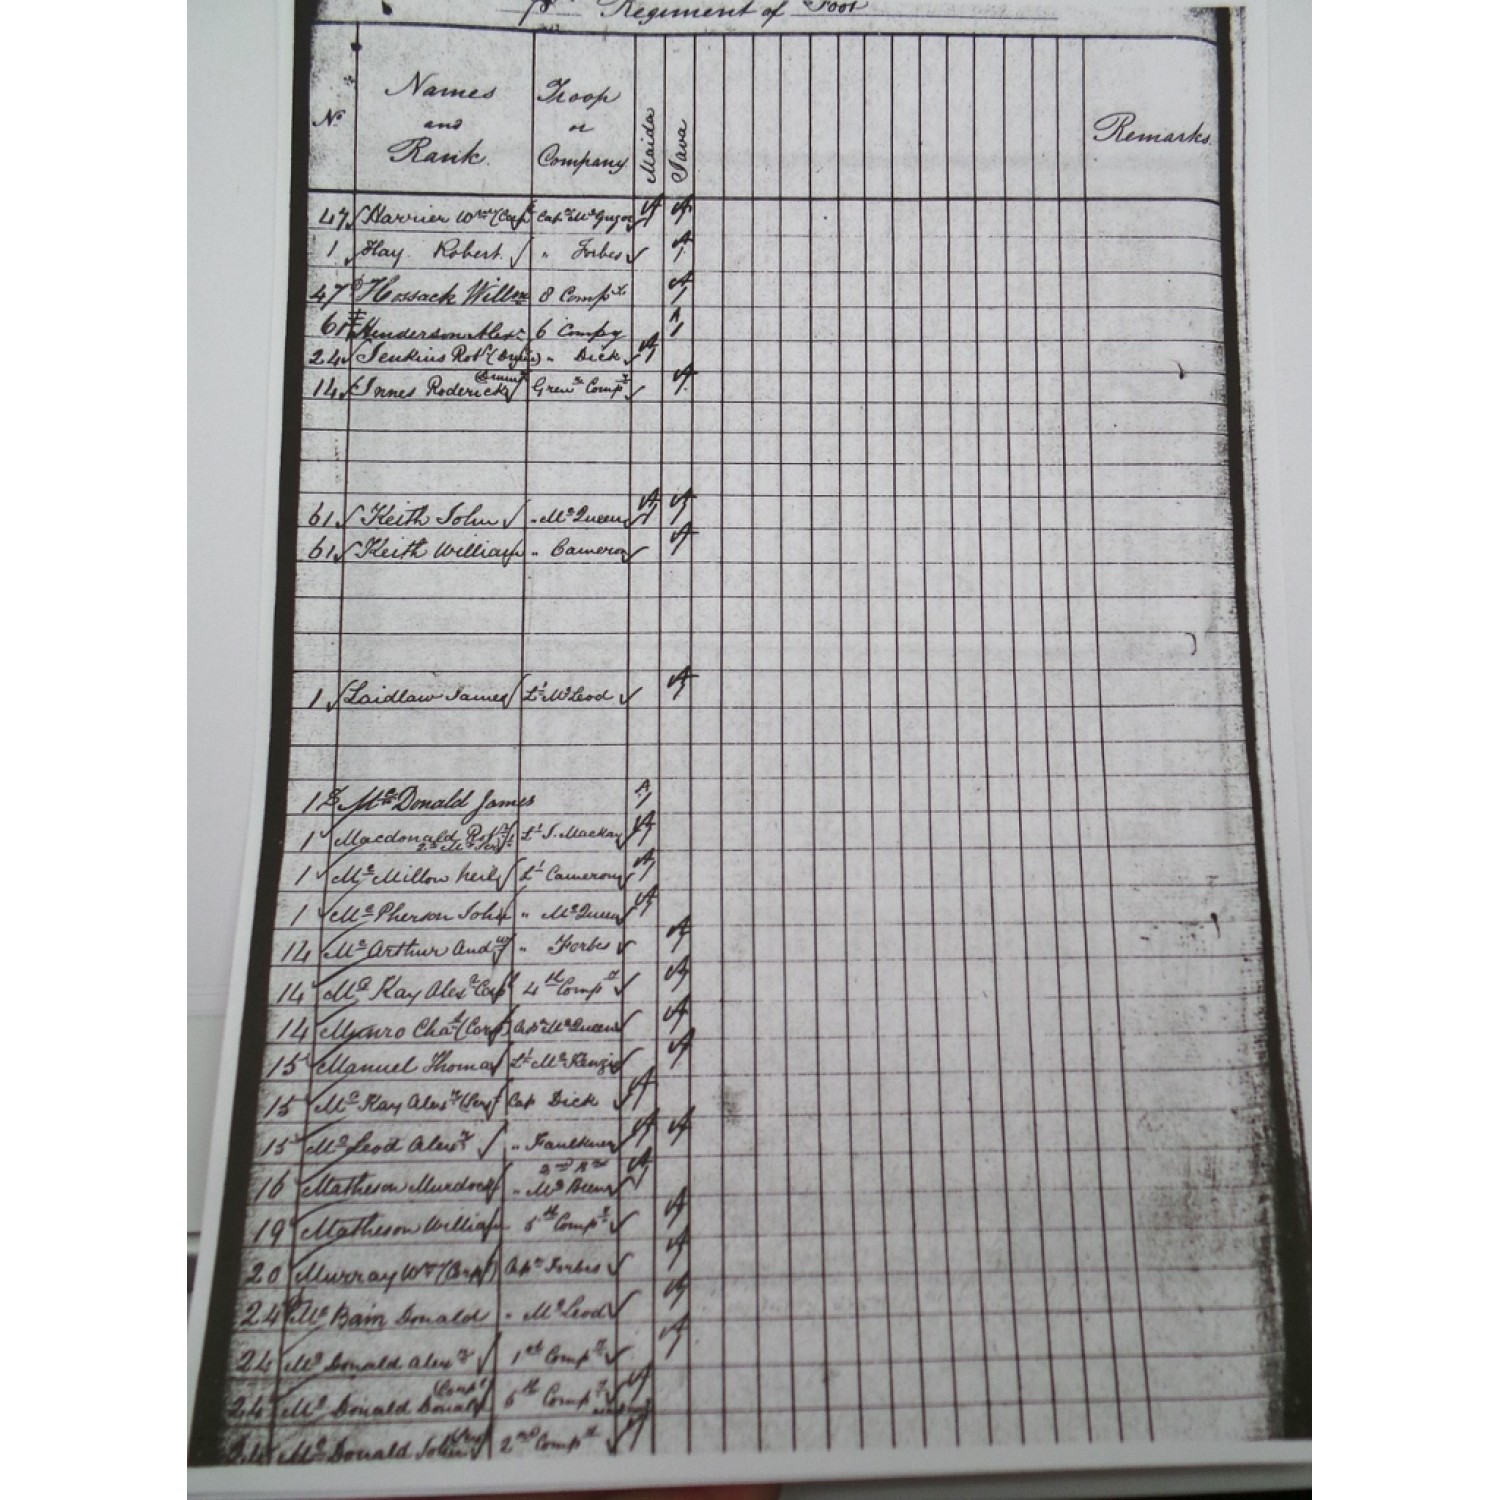 Regiment of Foot
No. Names and Rank. Troop or Company Maida Java Remarks.
47 Harrier Wm (Corp Capn McGregor A A
1 Hay Robert " Forbes A
47 Hossack Willm 8 Compy A
61 Henderson Alexr 6 Compy A
24 Jenkins Robt " Dick A
14 Innes Roderick (Drumr Grenr Compy A
61 Keith John " McQueen A A
61 Keith William " Cameron A
1 Laidlaw James Lt McLeod A
1 McDonald James A
1 Macdonald Robt Lt J. Mackay A
1 McMillon Neil Lt Cameron A
1 McPherson John " McQueen A
14 McArthur Andw " Forbes A
14 McKay Alexr Corpl 4th Compy A
14 Munro Chas (Corpl) Capn McQueen A
15 Manuel Thomas Lt McKenzie A
15 McKay Alexr (Serjt Cap Dick A
15 McLeod Alexr " Faulkner A A
16 Matheson Murdock " A
19 Matheson William 5th Compy A
20 Murray Wm (Corpl) Capn Forbes A
24 McBain Donald " McLeod A
24 McDonald Alexr 1st Compy A
24 McDonald Donald (Corpl 5th Compy A
24 McDonald John 2nd Compy A